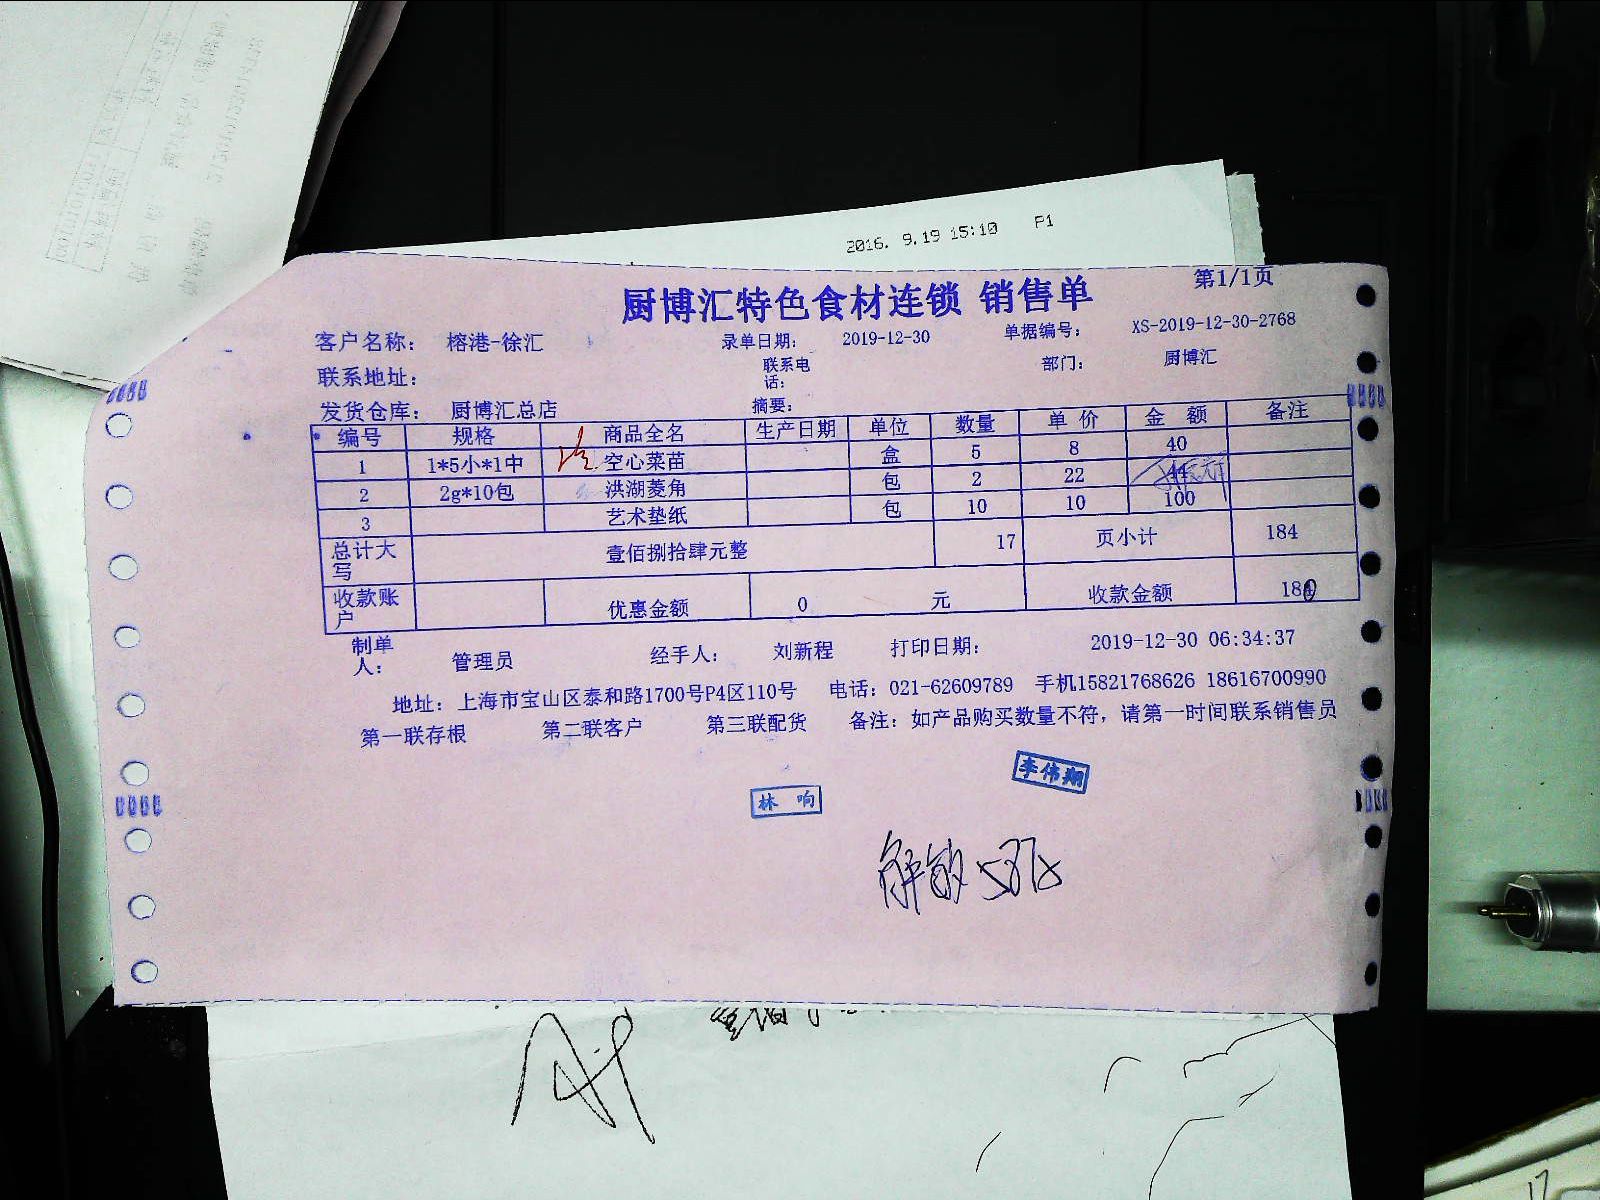 2016. 9.19 15:10 P1
厨博汇特色食材连锁 销售单
第1/1页
客户名称： 榕港-徐汇 录单日期： 2019-12-30 单据编号： XS-2019-12-30-2768
联系地址： 联系电话： 部门： 厨博汇
发货仓库： 厨博汇总店 摘要：
编号 规格 商品全名 生产日期 单位 数量 单价 金额 备注
1 1*5小*1中 空心菜苗 盒 5 8 40
2 2g*10包 洪湖菱角 包 2 22 44
3 艺术垫纸 包 10 10 100
总计大写 壹佰捌拾肆元整 17 页小计 184
收款账户 优惠金额 0 元 收款金额 180
制单人： 管理员 经手人： 刘新程 打印日期： 2019-12-30 06:34:37
地址：上海市宝山区泰和路1700号P4区110号 电话：021-62609789 手机15821768626 18616700990
第一联存根 第二联客户 第三联配货 备注：如产品购买数量不符，请第一时间联系销售员
李伟翔
林响